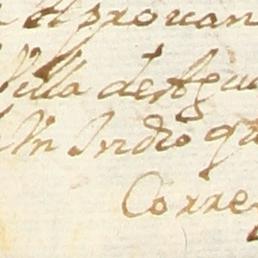 el provan
Villa de Agua
Un Indio qu
Corre